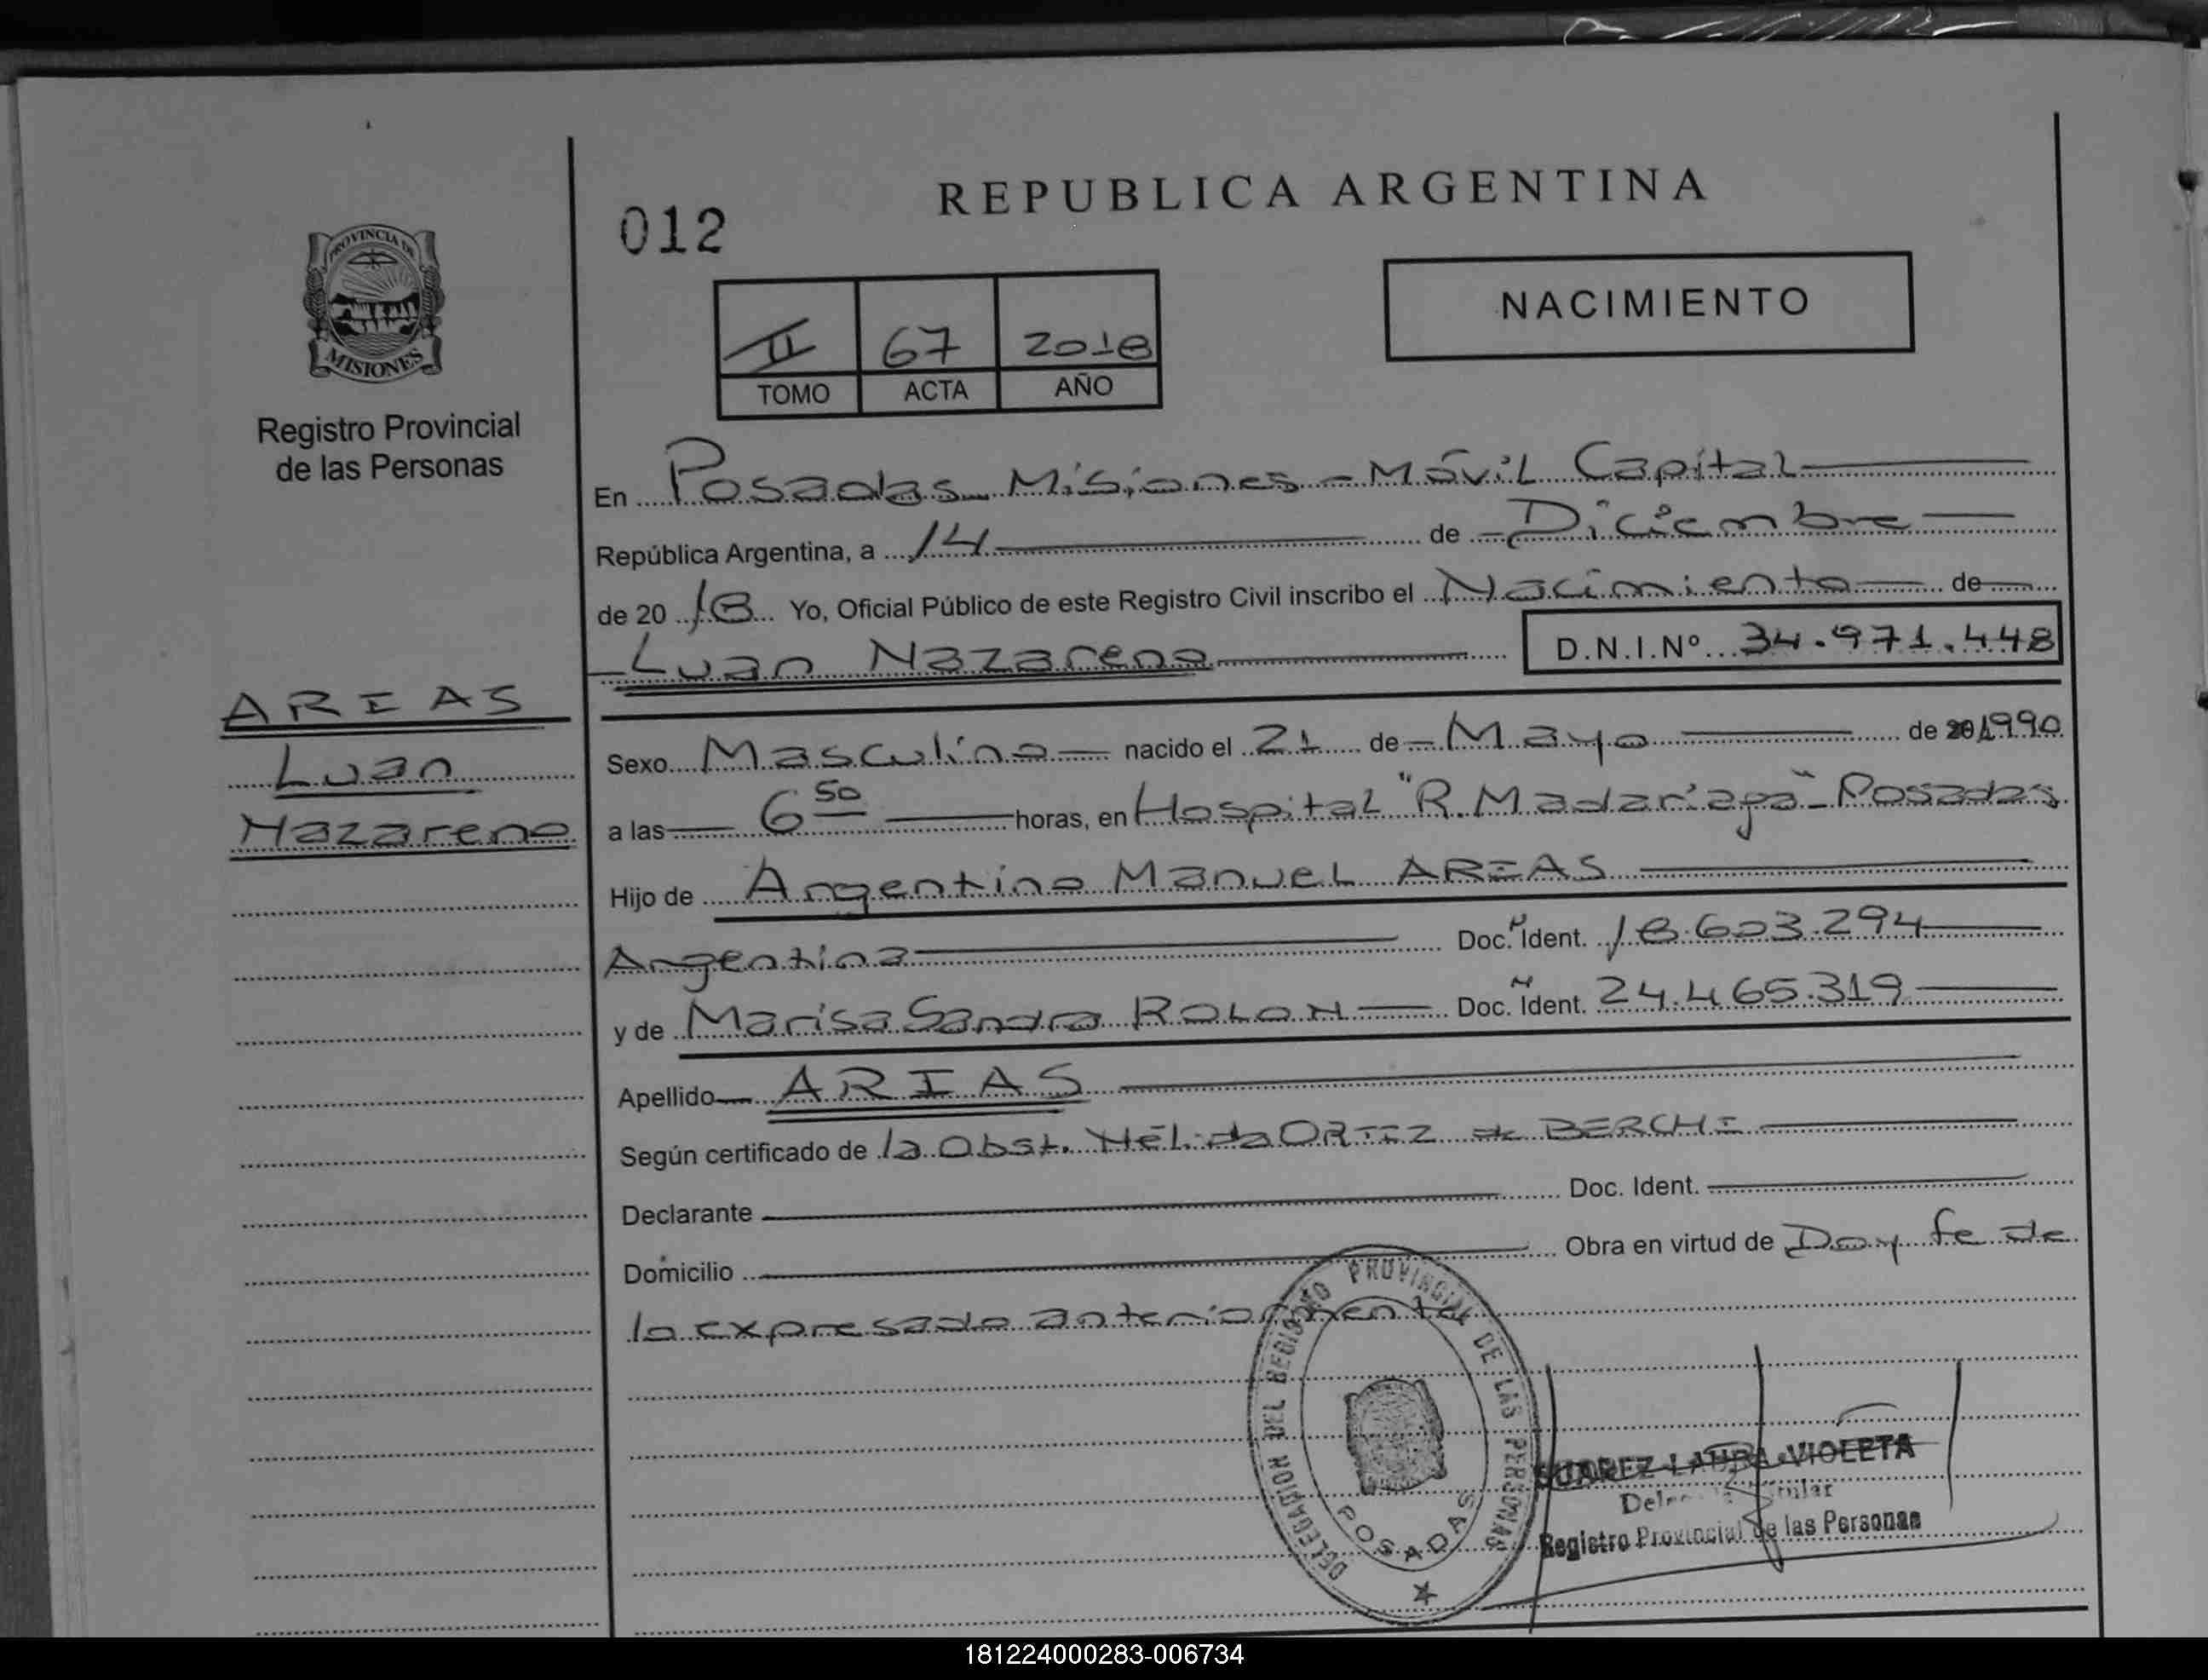 REPUBLICA ARGENTINA
012
NACIMIENTO
II 67 2018
TOMO ACTA AÑO
PROVINCIA DE
MISIONES
Registro Provincial
de las Personas
En Posadas Misiones - Móvil Capital
República Argentina, a 14 de Diciembre
de 20 18 Yo, Oficial Público de este Registro Civil inscribo el Nacimiento de
Luan Nazareno D.N.I.Nº 34.971.448
AREAS
Luan
Nazareno
Sexo Masculino nacido el 21 de Mayo de 20 1990
a las 6 50 horas, en Hospital "R. Madariaga" - Posadas
Hijo de Argentino Manuel AREAS
Argentina Doc. Ident. 18.603.294
y de Marisa Sandra ROLON Doc. Ident. 24.465.319
Apellido ARIAS
Según certificado de la Obst. Nélida ORTIZ de BERCHI
Declarante Doc. Ident.
Domicilio Obra en virtud de Doy fe de
lo expresado anteriormente
DELEGACION DEL REGISTRO PROVINCIAL DE LAS PERSONAS
POSADAS
SUAREZ LAURA VIOLETA
Registro Provincial de las Personas
181224000283-006734